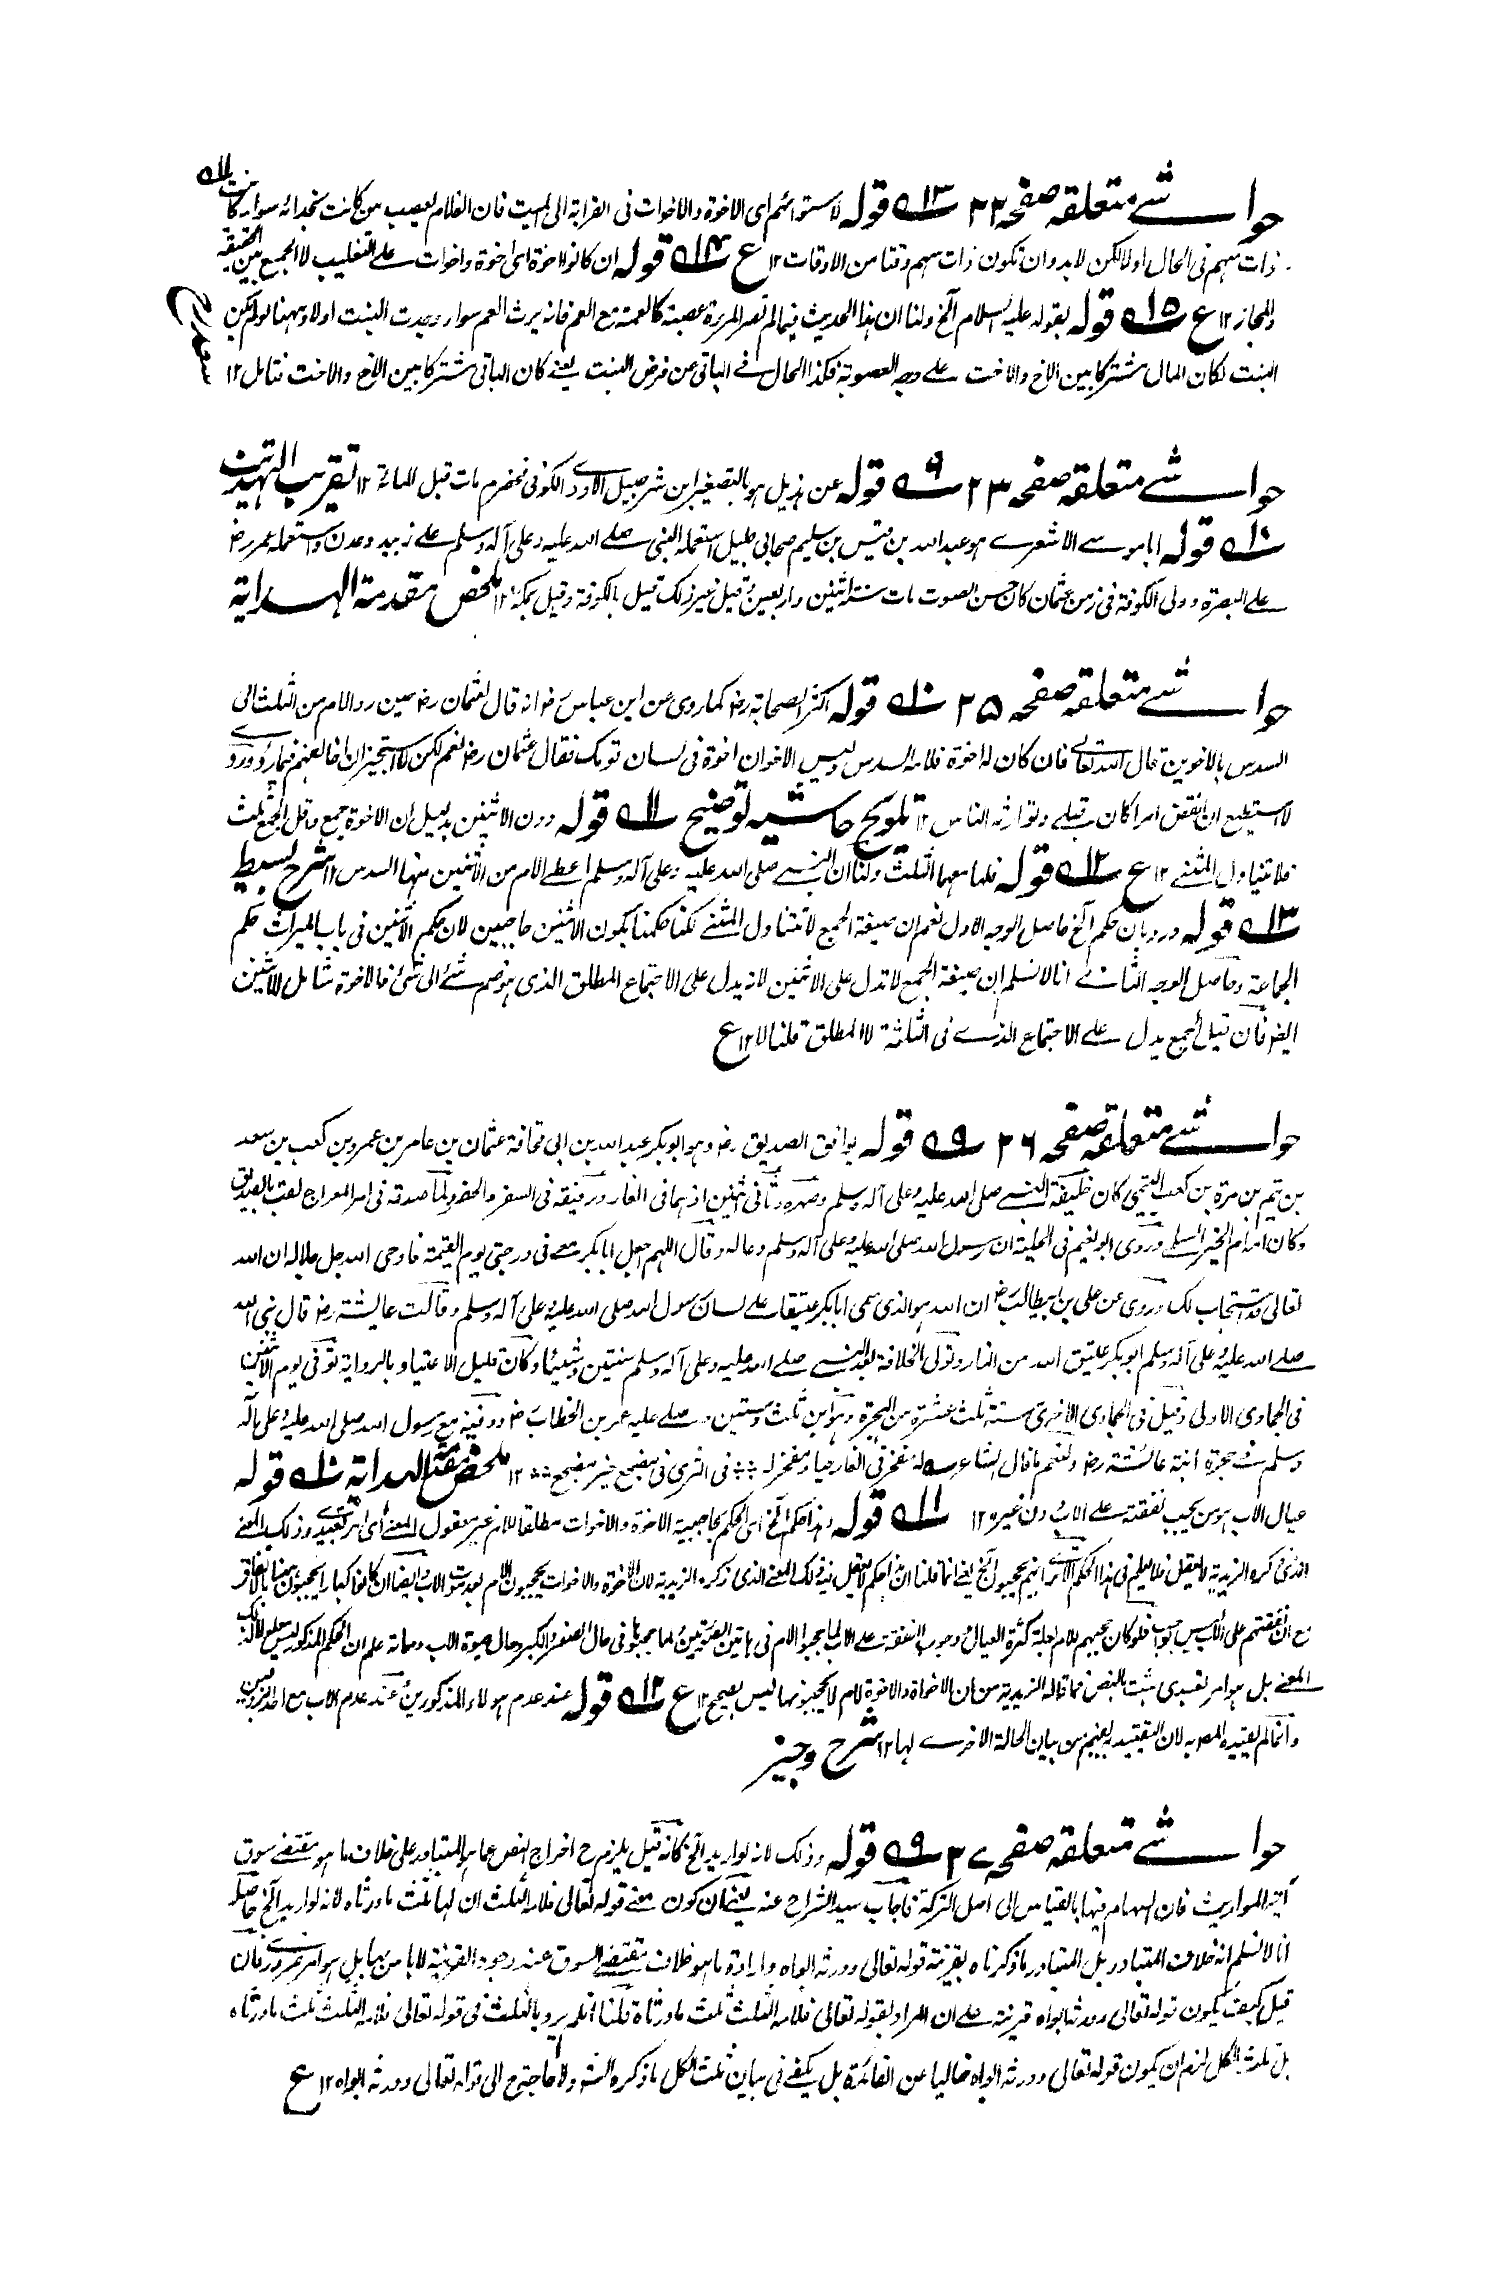 حواشے متعلقہ صفحہ ۲۲ ۱۳؎ قولہ لاستوائہم اى الاخوة والاخوات فى القرابة الى الميت فان الغلام يعصب من كانت بحذائه سواء كانت
ذات سہم فى الحال اولا لكن لابد وان تكون ذات سہم وقتا من الاوقات ۱۲ ع ۱۴؎ قولہ ان كانوا اخوة اى اخوة واخوات علے التغليب لا الجمع بين الحقيقة
والمجاز ۱۲ ع ۱۵؎ قولہ بقوله عليه السلام الخ ولنا ان ہذا الحديث فيما لم تصر المرءة عصبة كالعمة مع العم فانه يرث العم سواء وجدت البنت اولا وہہنا لو لم يكن
البنت لكان المال مشتركا بين الاخ والاخت علے وجه العصوبة فكذا الحال فے الباقى عن فرض البنت يعنے كان الباقى مشتركا بين الاخ والاخت فتامل ۱۲
حواشے متعلقہ صفحہ ۲۳ ۹؎ قولہ عن ہزيل ہو بالتصغير ابن شرحبيل الاودے الكوفى مخضرم مات قبل المائة ۱۲ تقريب التہذيب
۱۰؎ قولہ ابا موسے الاشعرے ہو عبد الله بن قيس بن سليم صحابى جليل استعمله النبى صلے الله عليه وعلى آله وسلم علے زبيد وعدن واستعمله عمر رض
علے البصرة وولى الكوفة فى زمن عثمان كان حسن الصوت مات سنة اثنين واربعين وقيل غير ذلك قيل بالكوفة وقيل بمكة ۱۲ ملخص مقدمة الہداية
حواشے متعلقہ صفحہ ۲۵ ۱۰؎ قولہ اكثر الصحابة رض كما روى عن ابن عباس رض انه قال لعثمان رض حين رد الام من الثلث الى
السدس بالاخوين قال الله تعالے فان كان له اخوة فلامه السدس وليس الاخوان اخوة فى لسان قومك فقال عثمان رض نعم لكن لا استجيز ان اخالفہم فيما رأوا وروے
لا استطيع ان انقض امرا كان قبلے وتوارثه الناس ۱۲ تلويح حاشيہ توضيح ۱۱؎ قولہ دون الاثنين بدليل ان الاخوة جمع واقل الجمع ثلث
فلا يتناول المثنے ۱۲ ع ۱۲؎ قولہ فلہا معہا الثلث ولنا ان النبے صلى الله عليه وعلى آله وسلم اعطے الام من الاثنين منہا السدس ۱۲ شرح بسيط
۱۳؎ قولہ ورد بان حكم الخ حاصل الوجه الاول نعم ان صيغة الجمع لا تتناول المثنے لكنا حكمنا بكون الاثنين حاجبين لان حكم الاثنين فى باب الميراث حكم
الجماعة وحاصل الوجه الثانے انا لا نسلم ان صيغة الجمع لا تدل على الاثنين لانه يدل على الاجتماع المطلق الذى ہو ضم شئے الى شئ فالاخوة شامل للاثنين
ايض فان قيل الجمع يدل علے الاجتماع الذے فى الثلثة لا المطلق قلنا لا ۱۲ ع
حواشے متعلقہ صفحہ ۲۶ ۹؎ قولہ يوافق الصديق رض وہو ابوبكر عبد الله بن ابى قحافة عثمان بن عامر بن عمرو بن كعب بن سعد
بن تيم بن مرة بن كعب التيمى كان خليفة النبے صلى الله عليه وعلى آله وسلم وصہره وثانى اثنين اذ ہما فى الغار ورفيقه فى السفر والحضر ولما صدقه فى امر المعراج لقب بالصديق
وكان امه ام الخير سلمے وروى ابو نعيم فى الحلية ان رسول الله صلى الله عليه وعلى آله وسلم دعا له وقال اللہم اجعل ابابكر معے فى درجتى يوم القيمة فاوحى الله جل جلاله ان الله
تعالى قد استجاب لك وروى عن على بن ابيطالب رض ان الله ہو الذى سمى ابابكر عتيقا علے لسان رسول الله صلى الله عليه وعلى آله وسلم وقالت عايشة رض قال نبى الله
صلے الله عليه وعلى آله وسلم ابوبكر عتيق الله من النار وتولى الخلافة بعد النبے صلے الله عليه وعلى آله وسلم سنتين وشيئا وكان قليل الاعتياد بالرواية توفى يوم الاثنين
فى الجمادى الاولى وقيل فى الجمادى الاخرى سنة ثلث عشرة من الہجرة وہو ابن ثلث وستين وصلے عليه عمر بن الخطاب رض ودفن مع رسول الله صلى الله عليه وعلى آله
وسلم فے حجرة ابنة عائشة رض ولنعم ما قال الشاعر ؎ له مفخر فى الغار حيا ومفخر له فى الثرى فى مضجع خير مضجع ۱۲ ملخص مقدمة الہداية ۱۰؎ قولہ
عيال الاب ہو من يجب نفقته علے الاب دون غيره ۱۲ ۱۱؎ قولہ ہذا حكم الخ اى الحكم بحاجبية الاخوة والاخوات مطلقا للام غير معقول المعنے اى امر تعبدے وذلك المعنے
الذى ذكره الزيدية لا يعقل فلا يعلم فى ہذا الحكم الا ترے انہم يحجبون الخ يعنے انما قلنا ان ہذا حكم لا يعقل فيه ذلك المعنے الذى ذكره الزيدية لان الاخوة والاخوات يحجبون الام بعد موت الاب وايضا ان كانوا كبارا يحجبون مہنا بالاتفاق
مع ان نفقتہم على الاب ليس بواجب فلو كان حجبہم للام لعلة كثرة العيال ووجوب النفقة علے الاب لما حجبوا الام فى ہاتين الصورتين فلما حجبوہا فى حال الصغر والكبر وحال حيوة الاب ومماته علم ان الحكم المذكور ليس معلولا لذلك
المعنے بل ہو امر تعبدى ثبت بالنص فما قاله الزيدية من ان الاخوات والاخوة لام لا يحجبونہا ليس بصحيح ۱۲ ع ۱۲؎ قولہ عند عدم ہولاء المذكورين عند عدم الاب مع احد الزوجين
وانما لم يقيده المصد به لان التقييد به يفہم من بيان الحالة الاخرے لہا ۱۲ شرح وجيز
حواشے متعلقہ صفحہ ۲۷ ۹؎ قولہ وذلك لانه لو اريد الخ كانه قيل يلزم ح اخراج النص عما ہو المتبادر على خلاف ما ہو مقتضے سوق
آية المواريث فان السہام فيہا بالقياس الى اصل التركة فاجاب سيد الشراح عنه يعنے ان كون معنے قوله تعالى فلامه الثلث ان لہا ثلث ما ورثاه لانه لو اريد الخ حاصله
انا لا نسلم انه خلاف المتبادر بل المتبادر ما ذكرناه بقرينة قوله تعالى وورثه ابواه وارادة ما ہو خلاف مقتضے السوق عند وجود القرينة لا باس بہا بل ہو امر ضرورے فان
قيل كيف يكون قوله تعالى وورثه ابواه قرينة علے ان المراد بقوله تعالى فلامه الثلث ثلث ما ورثاه قلنا انه لو لم يرد بالثلث فى قوله تعالى فلامه الثلث ثلث ما ورثاه
بل ثلث الكل لزم ان يكون قوله تعالى وورثه ابواه خاليا عن الفائدة بل يكفے فى بيان ثلث الكل ما ذكره الش ولا حاجة ح الى قوله تعالى وورثه ابواه ۱۲ ع